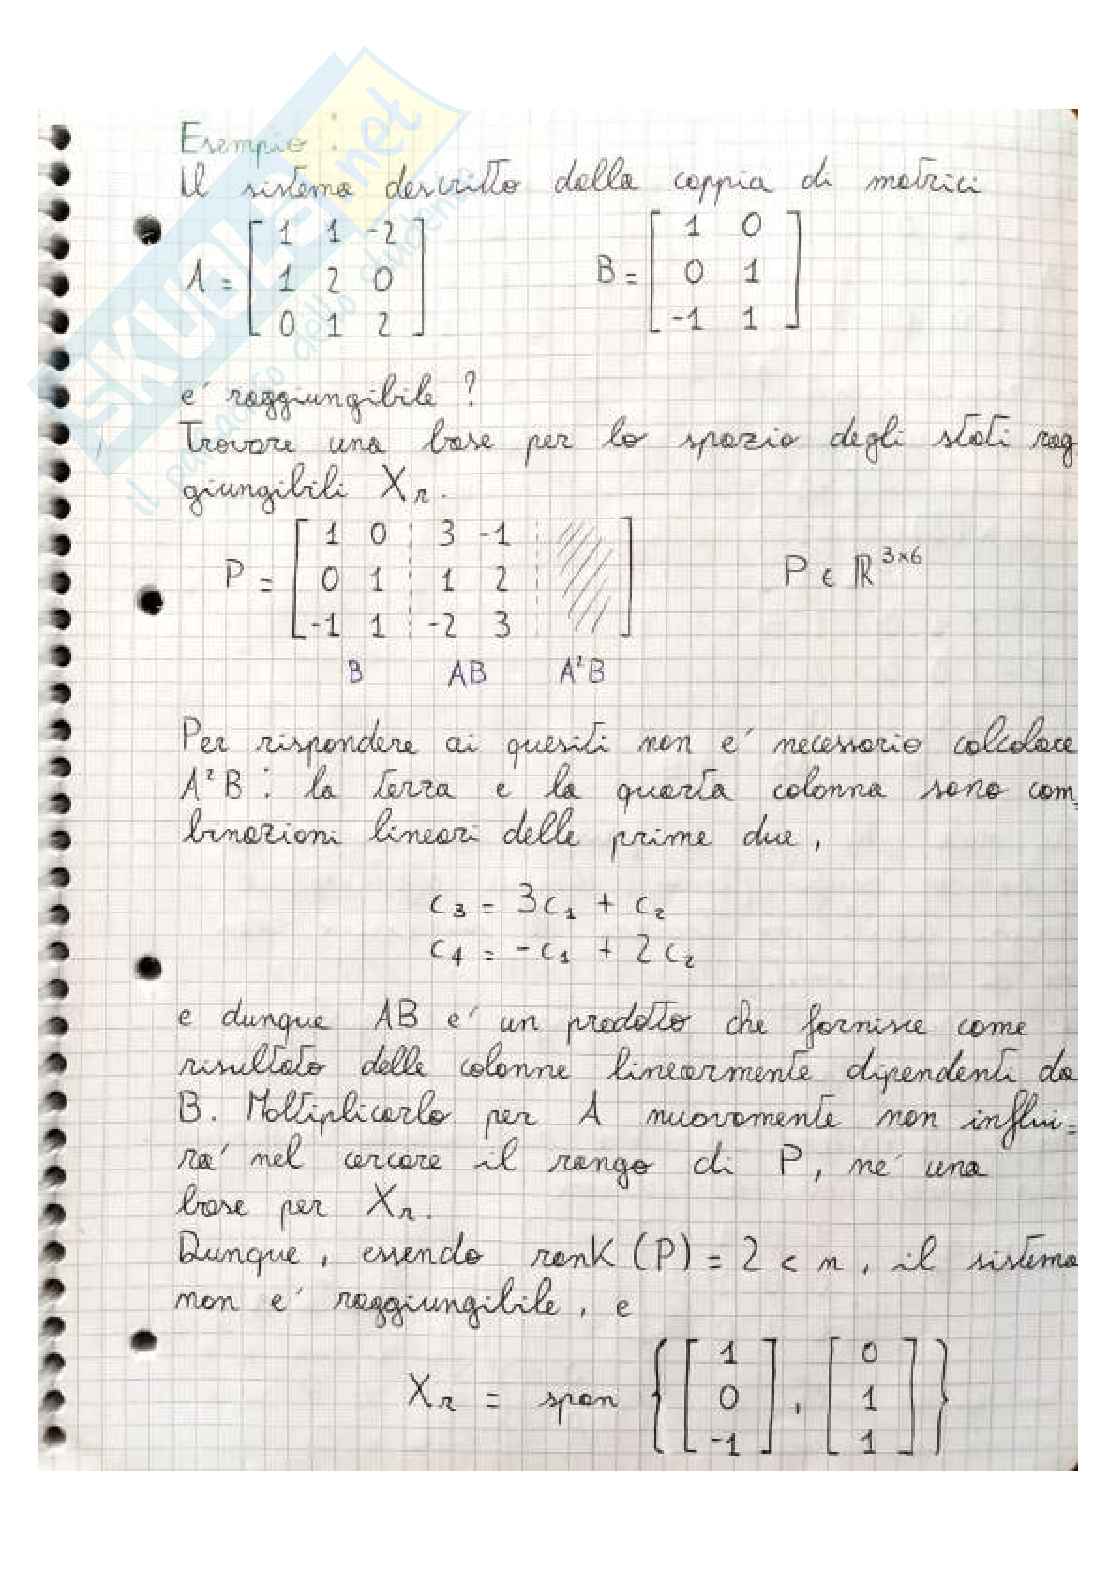 Esempio:
Il sistema descritto dalla coppia di matrici
A = [ 1 1 -2 ; 1 2 0 ; 0 1 2 ] B = [ 1 0 ; 0 1 ; -1 1 ]
e' raggiungibile?
Trovare una base per lo spazio degli stati rag
giungibili Xr.
P = [ 1 0 ¦ 3 -1 ¦ ; 0 1 ¦ 1 2 ¦ ; -1 1 ¦ -2 3 ¦ ] P ∈ ℝ³ˣ⁶
B AB A²B
Per rispondere ai quesiti non e' necessario calcolare
A²B : la terza e la quarta colonna sono com=
binazioni lineari delle prime due,
c₃ = 3c₁ + c₂
c₄ = -c₁ + 2c₂
e dunque AB e' un prodotto che fornisce come
risultato delle colonne linearmente dipendenti da
B. Moltiplicarlo per A nuovamente non influi=
ra' nel cercare il rango di P, ne' una
base per Xr.
Dunque, essendo rank (P) = 2 < n, il sistema
non e' raggiungibile, e
Xr = span { [ 1 ; 0 ; -1 ] , [ 0 ; 1 ; 1 ] }
SKUOLA.net
il paradiso dello studente